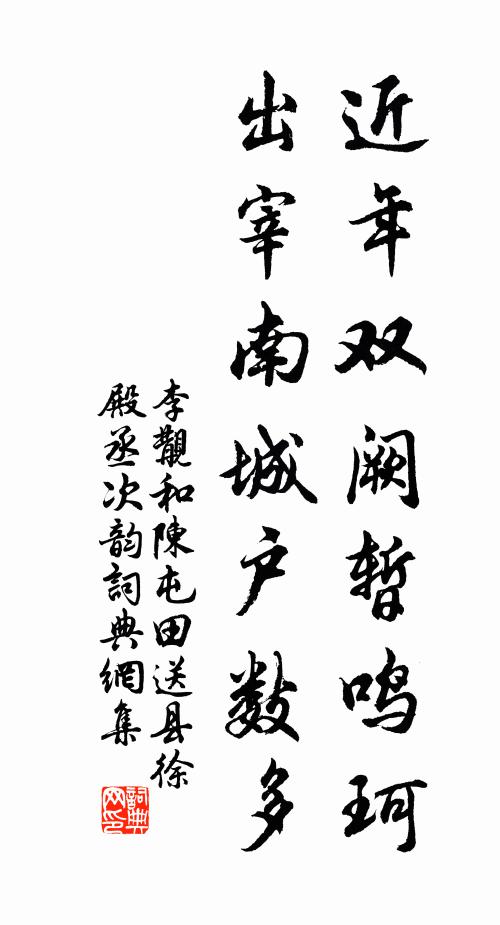 近年双阙暂鸣珂
出宰南城户数多
李觏和陳屯田送县徐
殿丞次韵詞典網集
詞典网印